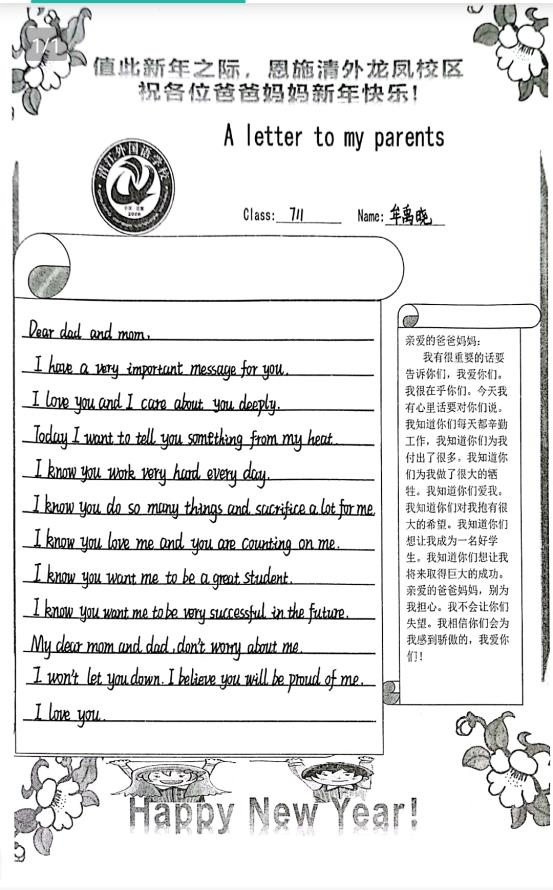 1/1
值此新年之际，恩施清外龙凤校区
祝各位爸爸妈妈新年快乐！
A letter to my parents
Class: 711 Name: 牟禹晓
Dear dad and mom,
I have a very important message for you.
I love you and I care about you deeply.
Today I want to tell you something from my heat.
I know you work very hard every day.
I know you do so many things and sacrifice a lot for me
I know you love me and you are counting on me.
I know you want me to be a great student.
I know you want me to be very successful in the future.
My dear mom and dad, don't worry about me.
I won't let you down. I believe you will be proud of me.
I love you.
亲爱的爸爸妈妈：
我有很重要的话要
告诉你们，我爱你们。
我很在乎你们。今天我
有心里话要对你们说。
我知道你们每天都辛勤
工作，我知道你们为我
付出了很多。我知道你
们为我做了很大的牺
牲。我知道你们爱我。
我知道你们对我抱有很
大的希望。我知道你们
想让我成为一名好学
生。我知道你们想让我
将来取得巨大的成功。
亲爱的爸爸妈妈，别为
我担心。我不会让你们
失望。我相信你们会为
我感到骄傲的，我爱你
们！
Happy New Year!